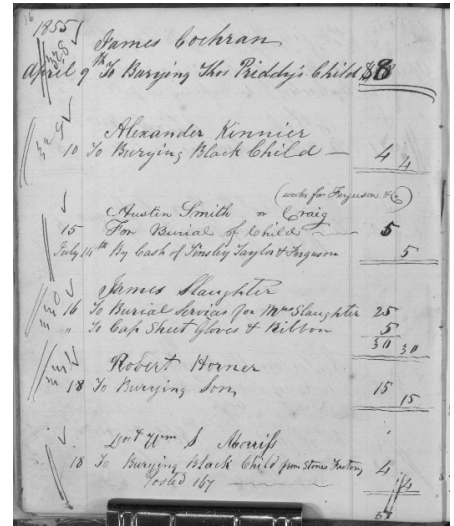 16
1855
James Cochran
April 9th To Burying Thos Priddy's Child $8
Alexander Kinnier
10 To Burying Black Child — 4 4
(works for Ferguson & Co)
Austin Smith or Craig
15 For Burial of Child 5
July 14th By Cash of Tinsley Taylor & Ferguson 5
James Slaughter
16 To Burial Services for Mrs Slaughter 25
" To Cap Sheet Gloves & Ribbon 5
30 30
Robert Horner
18 To Burying Son 15
15
Doct Wm S Morriss
18 To Burying Black Child from Stones Factory 4
Posted 167 4